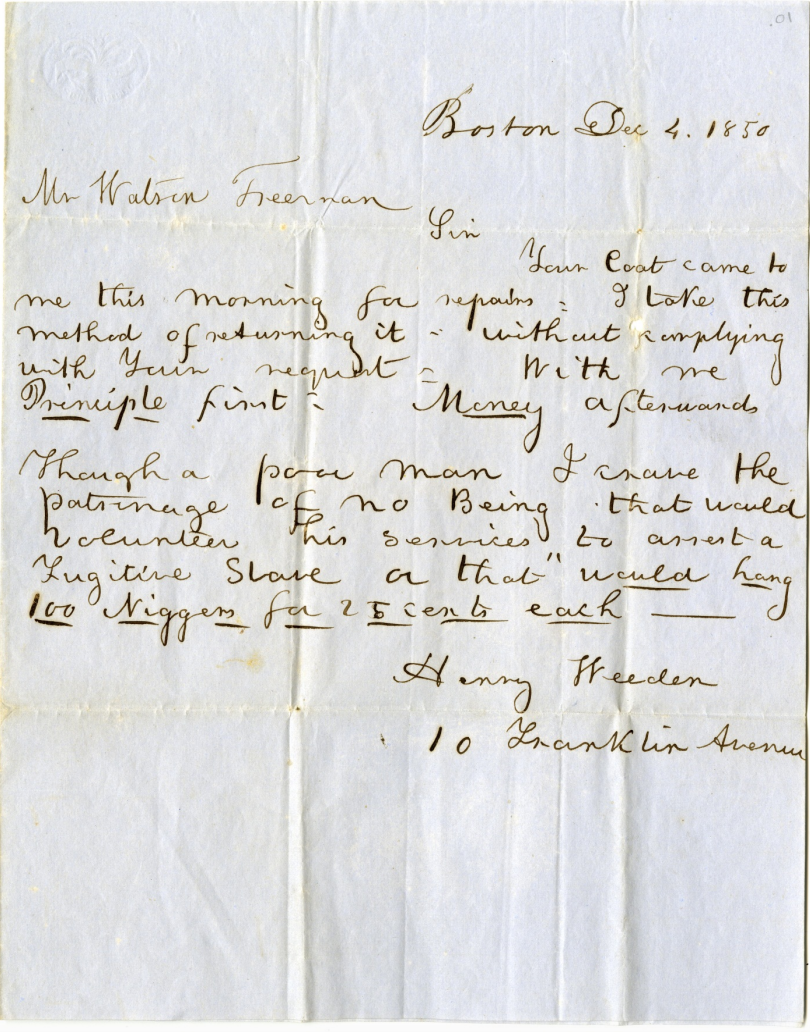 .01
Boston Dec 4. 1850
Mr Watson Freeman
Sir
Your Coat came to
me this morning for repairs - I take this
method of returning it - without complying
with Your request - With me
Principle first - Money afterwards
Though a poor man I crave the
patronage of no Being that would
volunteer his services to arrest a
Fugitive Slave or that "would hang
100 Niggers for 25 cents each —
Henry Weeden
10 Franklin Avenue